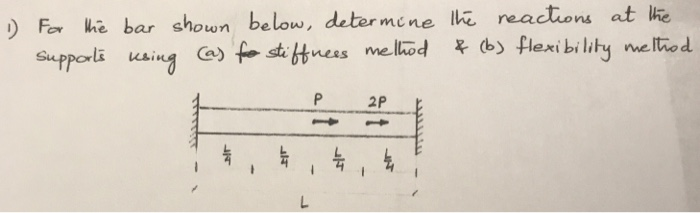 1) For the bar shown below, determine the reactions at the
supports using (a) stiffness method & (b) flexibility method
P 2P
L/4 L/4 L/4 L/4
L